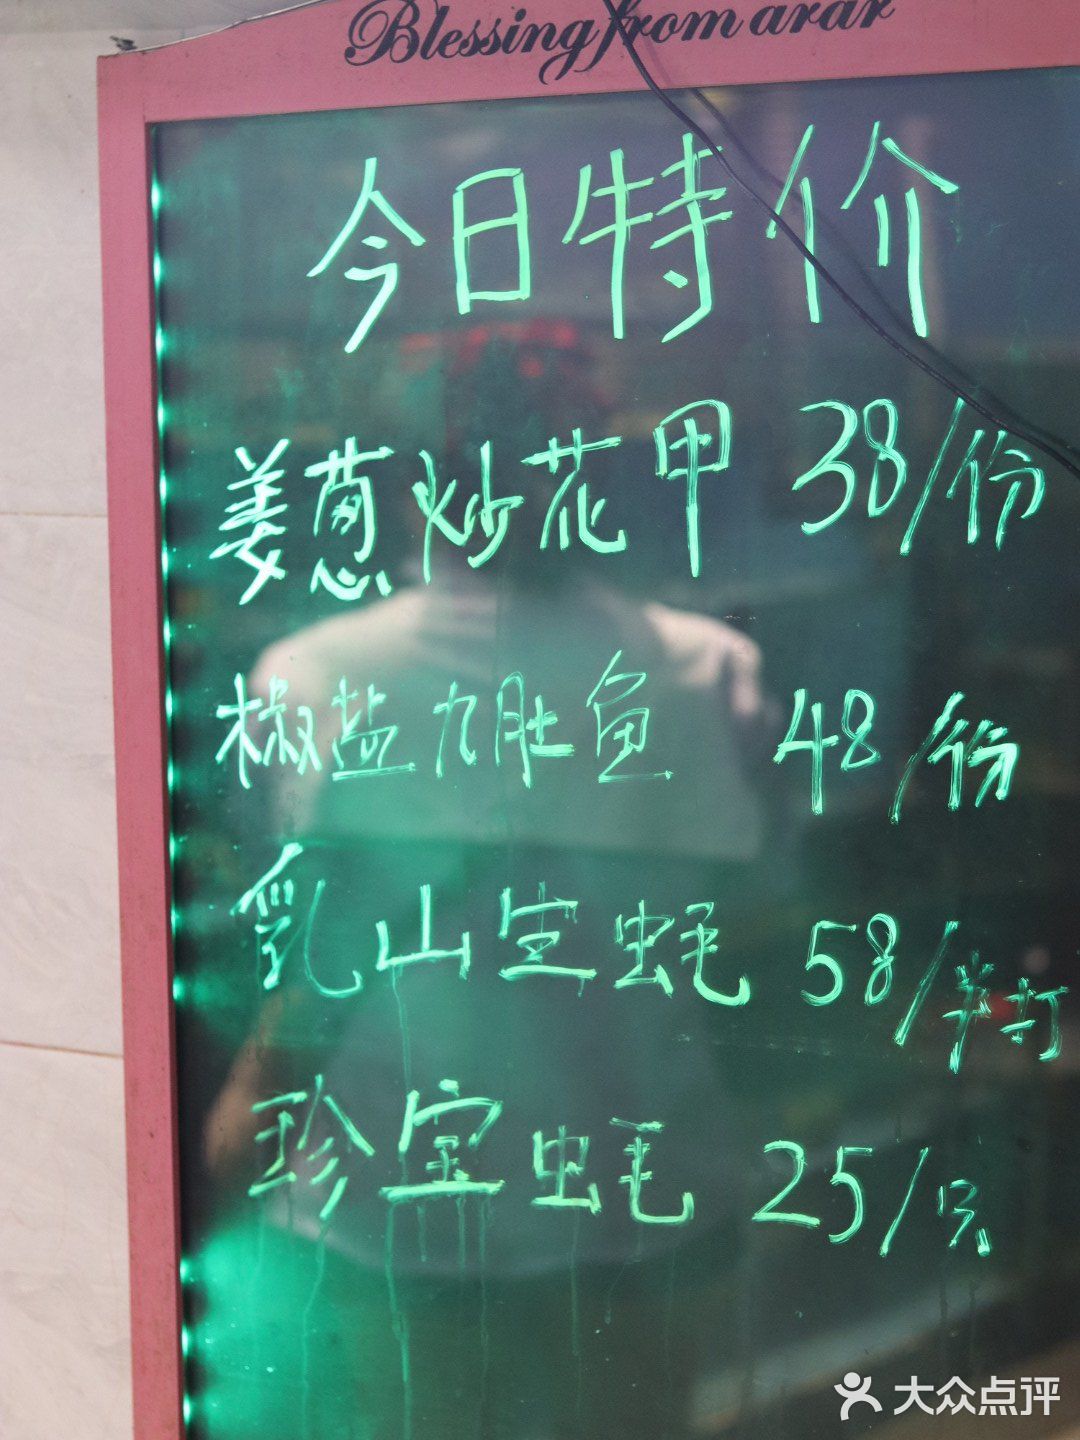 Blessing from arar
今日特价
姜葱炒花甲 38/份
椒盐九肚鱼 48/份
乳山生蚝 58/半打
珍宝蚝 25/只
大众点评